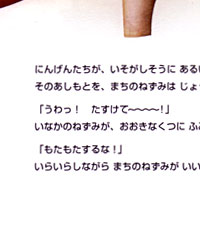 にんげんたちが、いそがしそうに ある
そのあしもとを、まちのねずみは じょ
「うわっ！　たすけて〜〜〜〜！」
いなかのねずみが、おおきなくつに ふ
「もたもたするな！」
いらいらしながら まちのねずみが いい